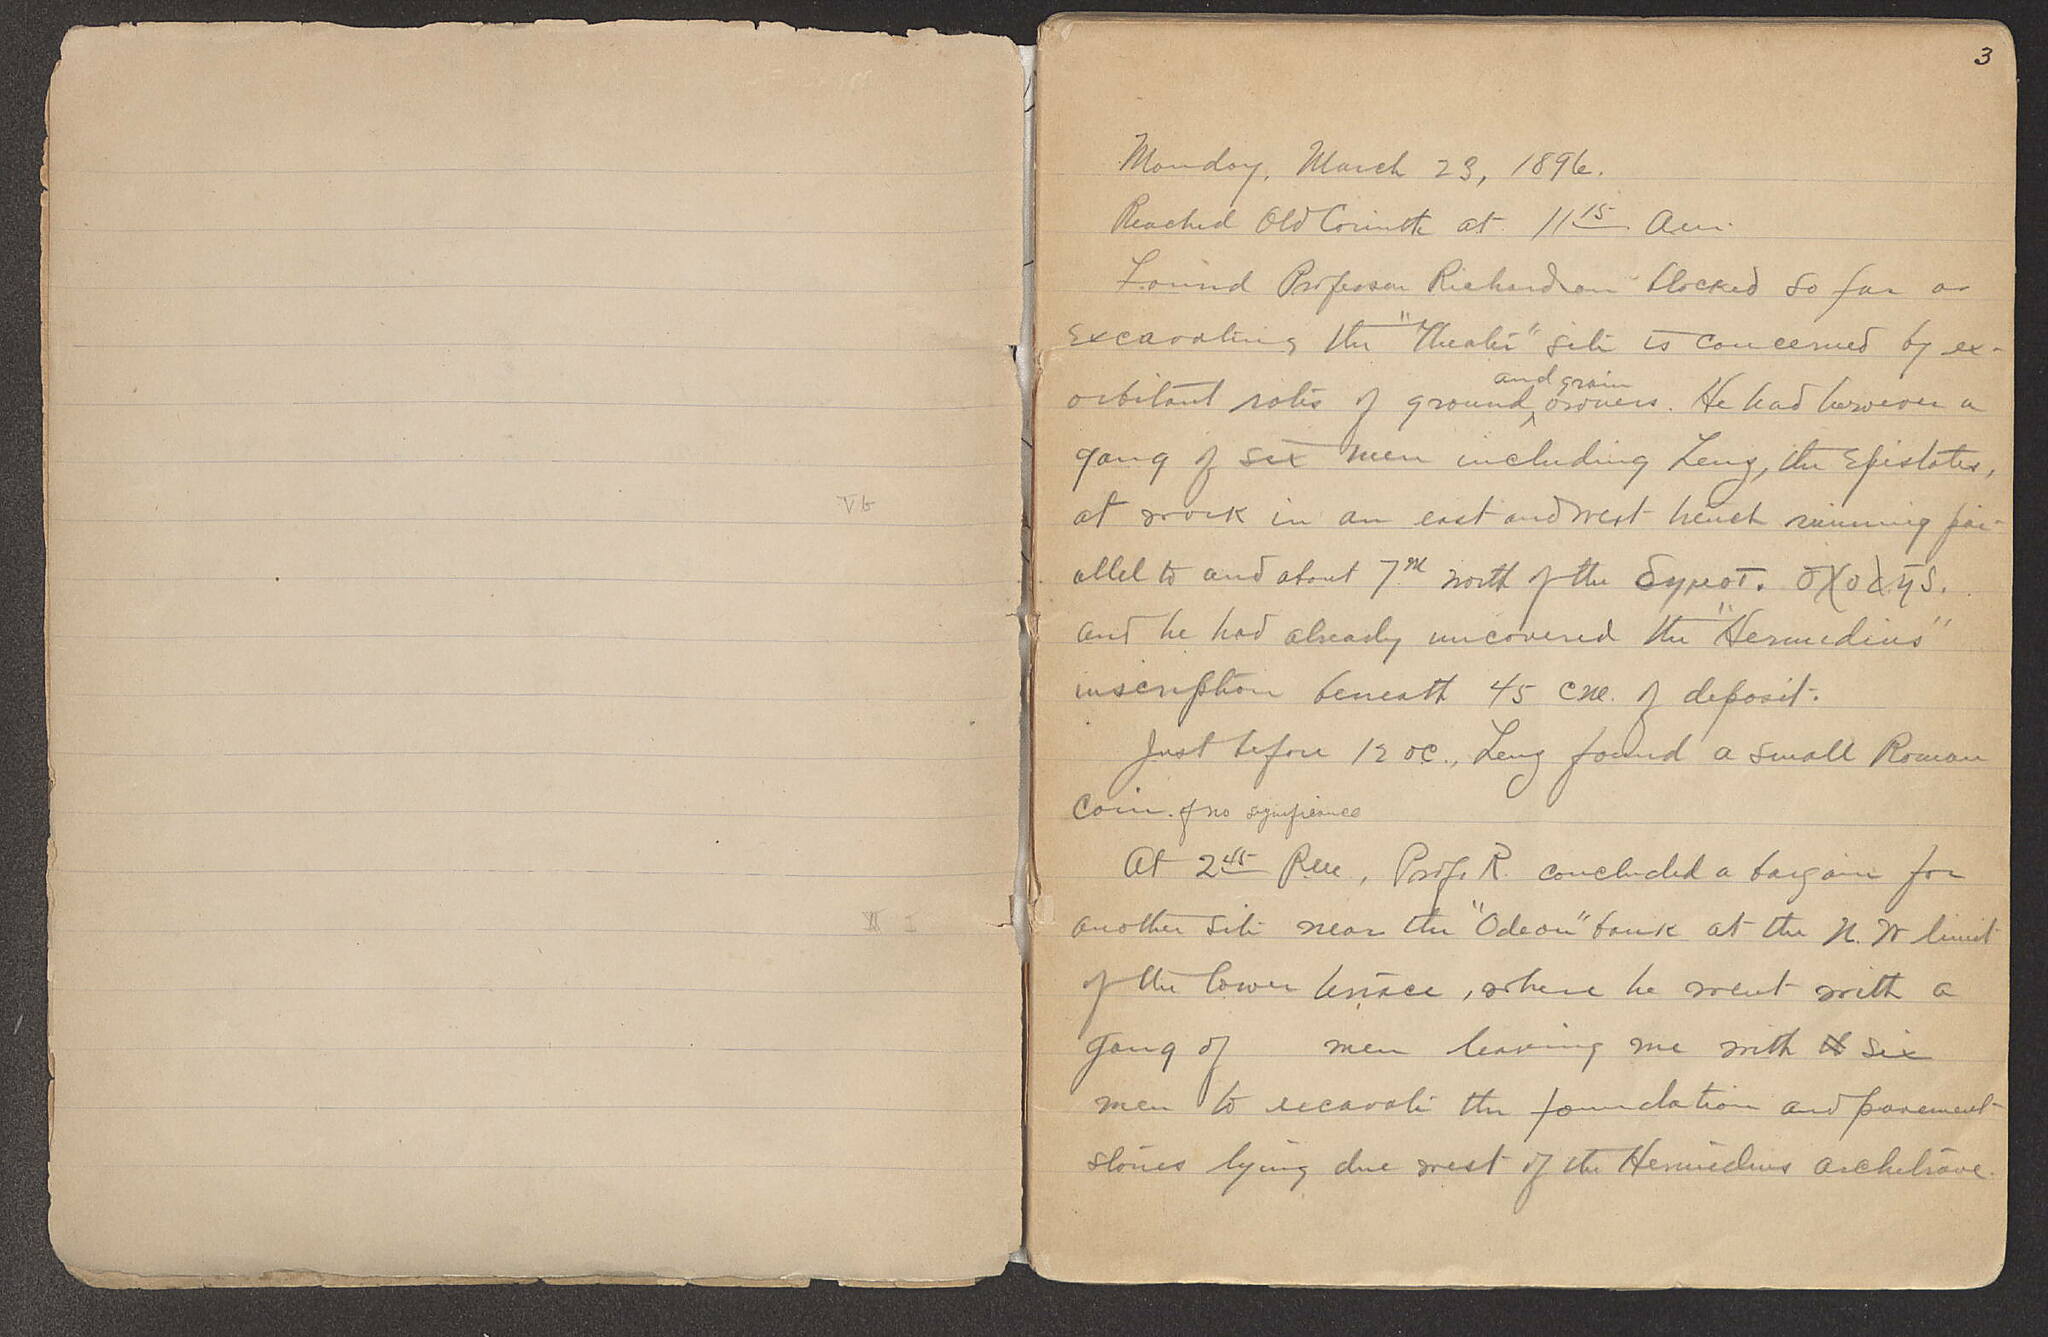 3
Monday, March 23, 1896.
Reached Old Corinth at 11 15 A.m.
Found Professor Richardson blocked so far as
excavating the "Theatre" site is concerned by ex-
orbitant rates of ground and grain owners. He had however a
gang of six men including Leng, the Epistates,
at work in an east and west trench running par-
allel to and about 7m north of the δημοτ. σχολῆς.
and he had already uncovered the "Hermidius"
inscription beneath 45 cm. of deposit.
Just before 12 oc., Leng found a small Roman
coin. of no significance
At 2 45 P.m., Prof. R. concluded a bargain for
another site near the "Odeon" bank at the N. W limit
of the lower terrace, where he went with a
gang of men leaving me with six
men to excavate the foundation and pavement
stones lying due west of the Hermidius architrave.
Vb
I